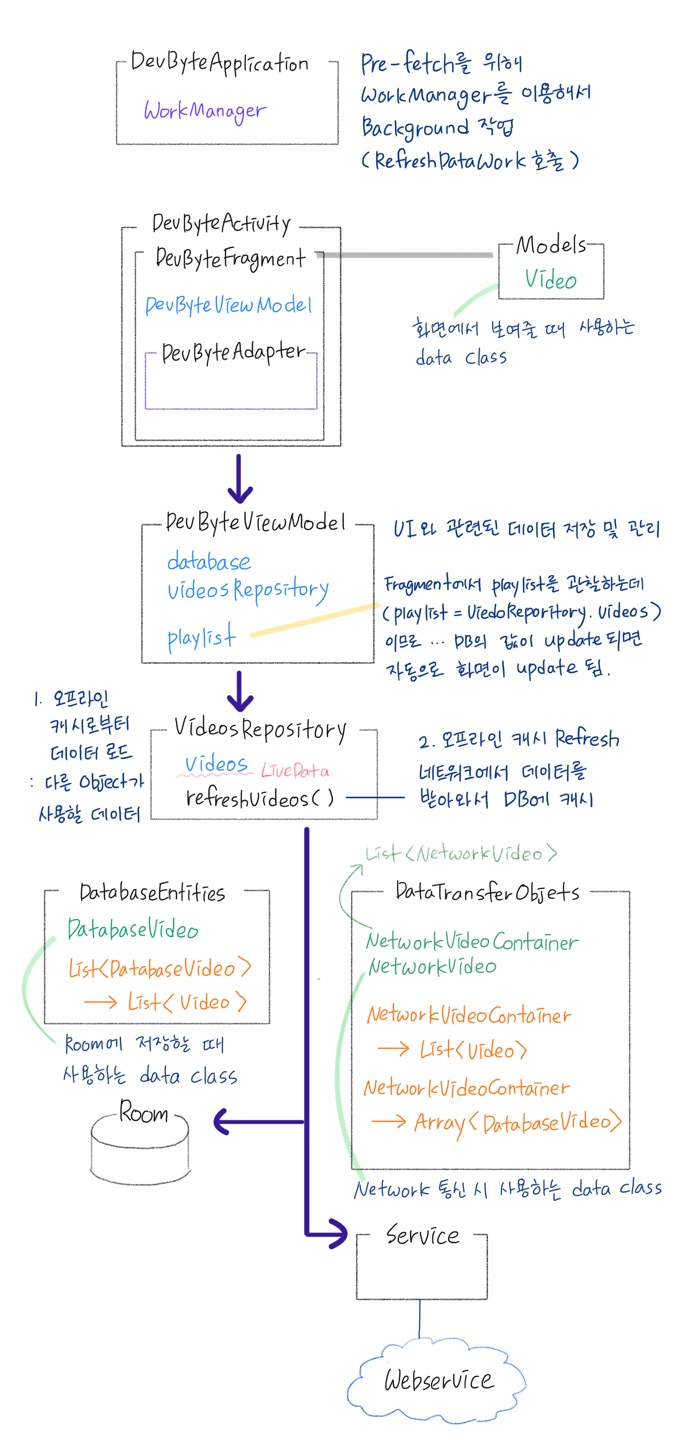 DevByteApplication
WorkManager
Pre-fetch를 위해
WorkManager를 이용해서
Background 작업
(RefreshDataWork 호출)
DevByteActivity
DevByteFragment
DevByteViewModel
DevByteAdapter
Models
Video
화면에서 보여줄 때 사용하는
data class
DevByteViewModel
database
videosRepository
playlist
UI와 관련된 데이터 저장 및 관리
Fragment에서 playlist를 관찰하는데
(playlist = ViedoReporitory.videos)
이므로 ... DB의 값이 update 되면
자동으로 화면이 update 됨.
1. 오프라인
캐시로부터
데이터 로드
: 다른 Object가
사용할 데이터
VideosRepository
videos LiveData
refreshVideos()
2. 오프라인 캐시 Refresh
네트워크에서 데이터를
받아와서 DB에 캐시
List<NetworkVideo>
DatabaseEntities
DatabaseVideo
List<DatabaseVideo>
→ List<Video>
Room에 저장할 때
사용하는 data class
Room
DataTransferObjets
NetworkVideoContainer
NetworkVideo
NetworkVideoContainer
→ List<Video>
NetworkVideoContainer
→ Array<DatabaseVideo>
Network 통신 시 사용하는 data class
Service
Webservice